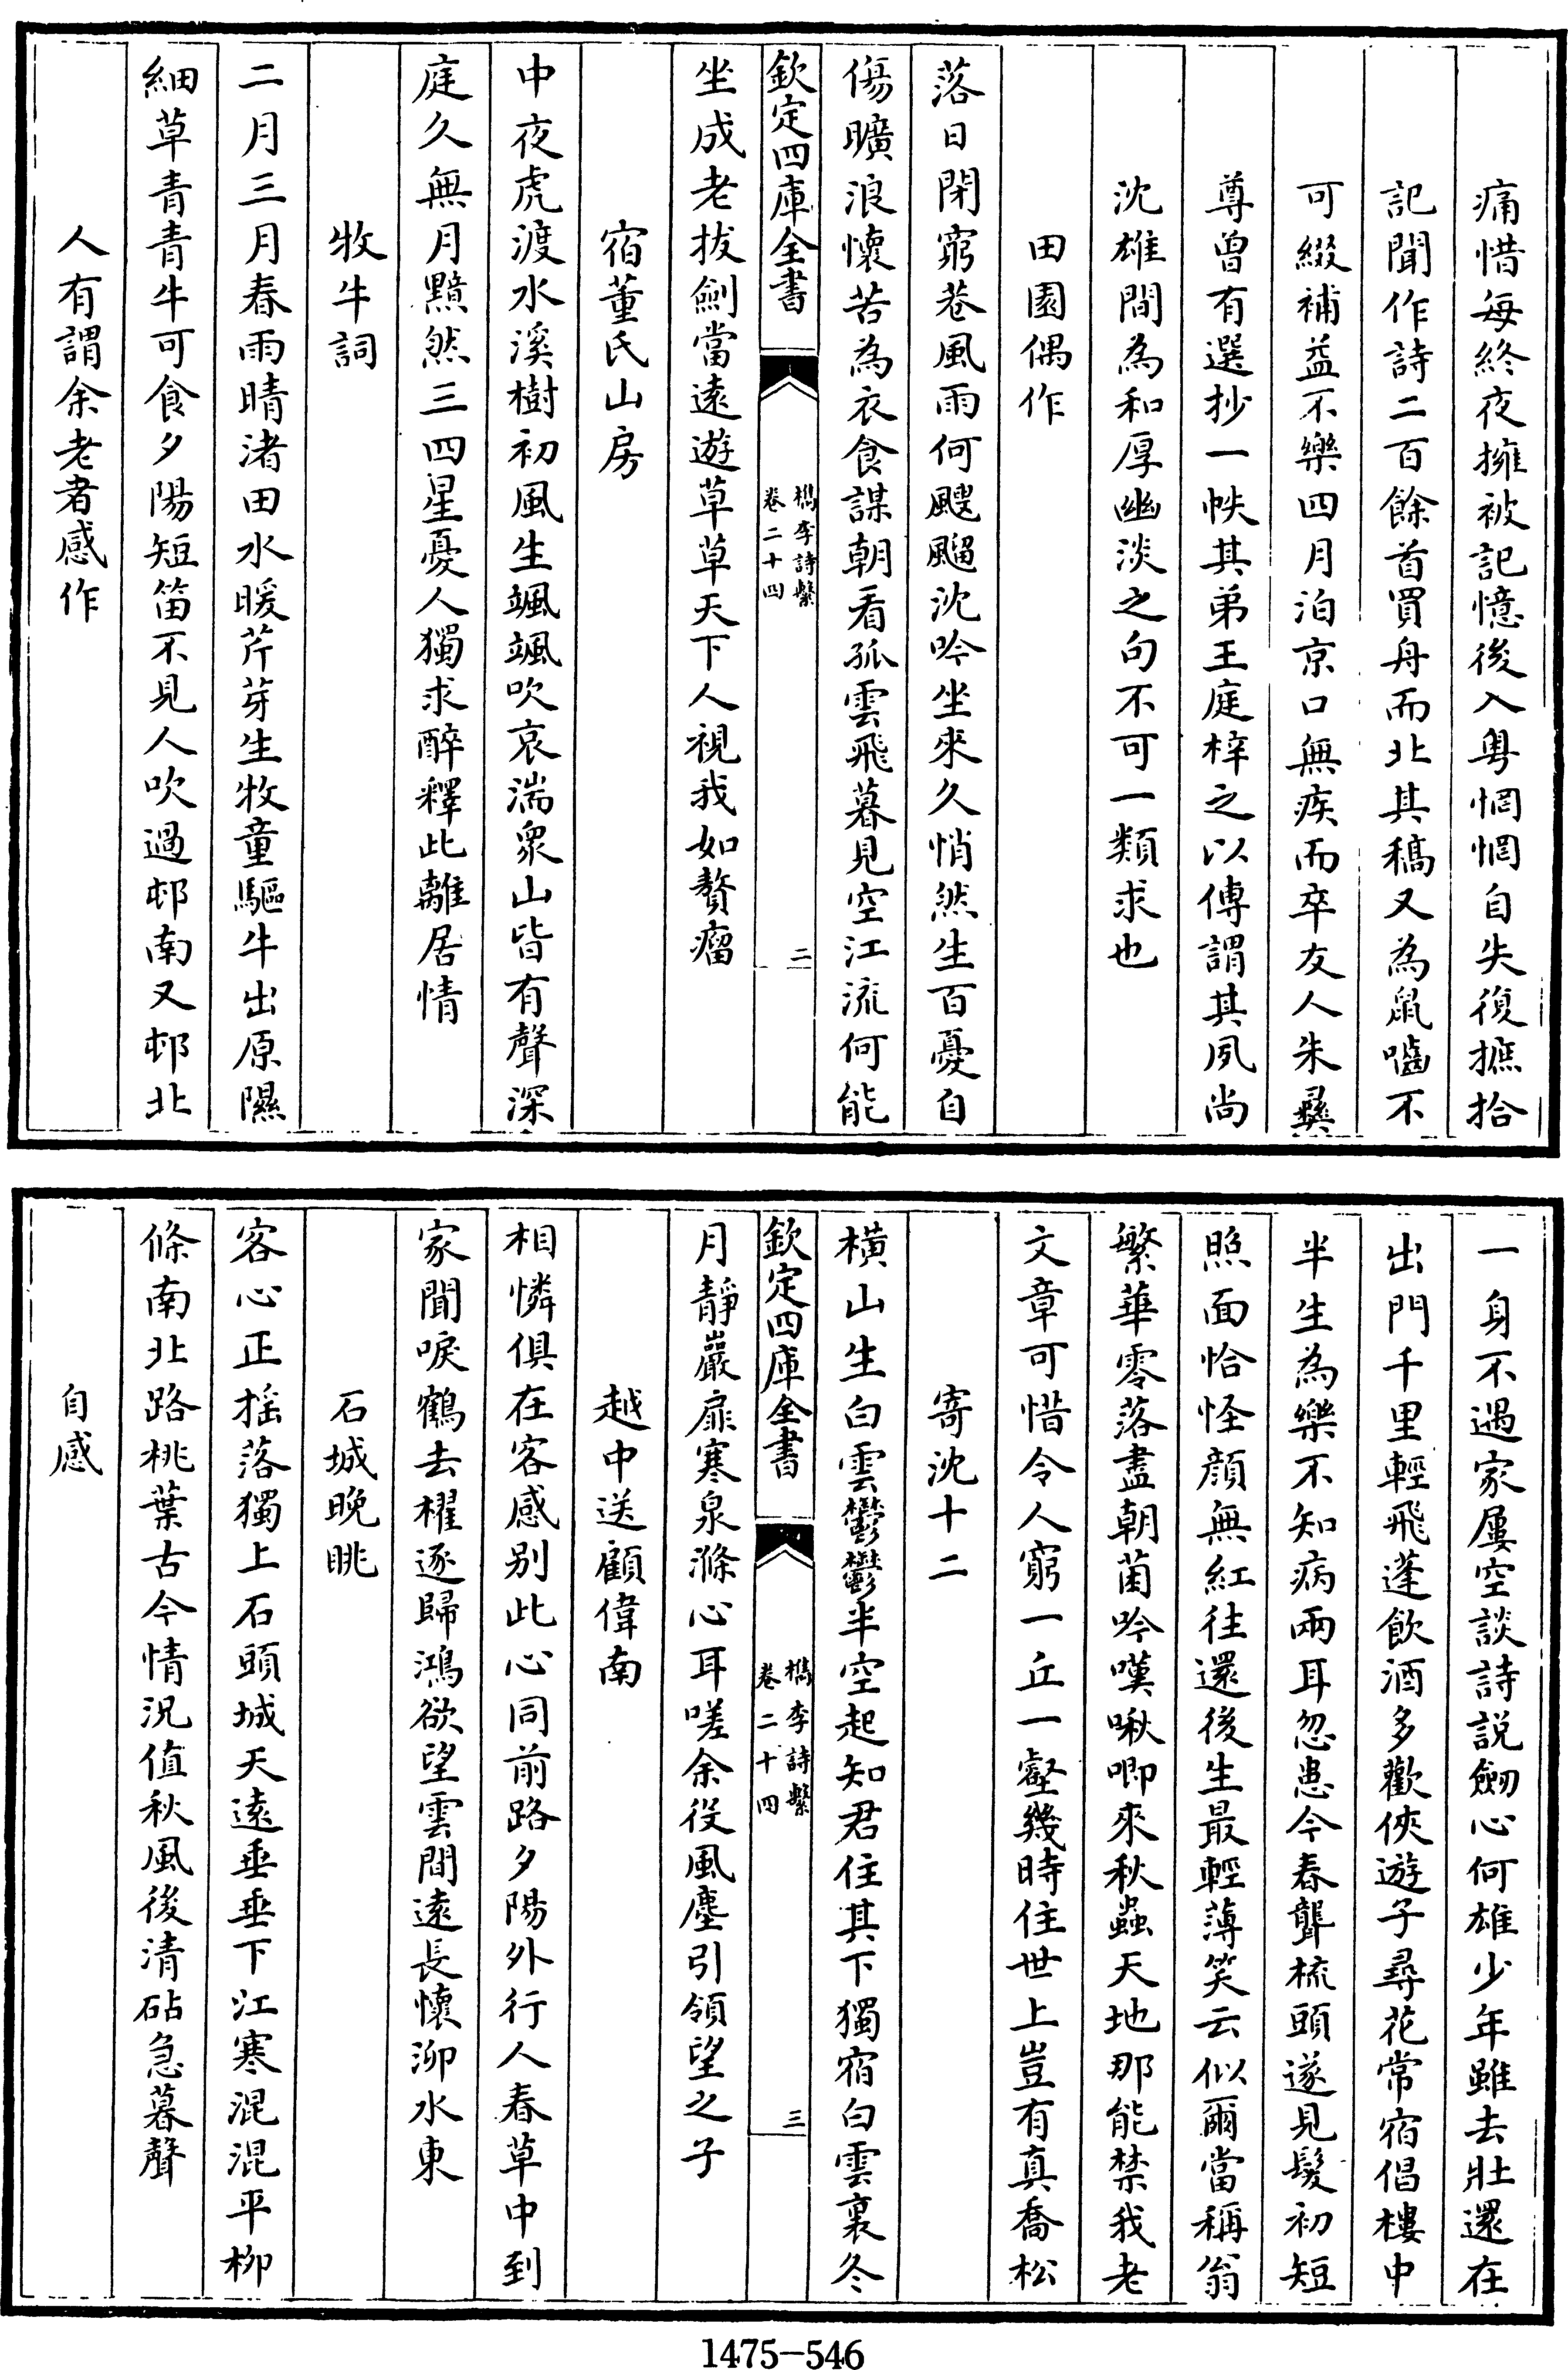 痛惜每終夜擁被記憶後入粤惘惘自失復摭拾
記聞作詩二百餘首買舟而北其稿又為鼠囓不
可綴補益不樂四月泊京口無疾而卒友人朱彞
尊曾有選抄一帙其弟王庭梓之以傳謂其夙尚
沈雄間為和厚幽淡之句不可一類求也
田園偶作
落日閉窮巷風雨何颼飀沈吟坐來久悄然生百憂自
傷曠浪懷苦為衣食謀朝看孤雲飛暮見空江流何能
欽定四庫全書
檇李詩繫
卷二十四
二
坐成老拔劍當遠遊草草天下人視我如贅瘤
宿董氏山房
中夜虎渡水溪樹初風生颯颯吹哀湍衆山皆有聲深
庭久無月黯然三四星憂人獨求醉釋此離居情
牧牛詞
二月三月春雨晴渚田水暖芹芽生牧童驅牛出原隰
細草青青牛可食夕陽短笛不見人吹過邨南又邨北
人有謂余老者感作
一身不遇家屢空談詩説劒心何雄少年雖去壯還在
出門千里輕飛蓬飲酒多歡俠遊子尋花常宿倡樓中
半生為樂不知病兩耳忽患今春聾梳頭遂見髮初短
照面恰怪顔無紅往還後生最輕薄笑云似爾當稱翁
繁華零落盡朝菌吟嘆啾唧來秋蟲天地那能禁我老
文章可惜令人窮一丘一壑幾時住世上豈有真喬松
寄沈十二
橫山生白雲鬱鬱半空起知君住其下獨宿白雲裏冬
欽定四庫全書
檇李詩繫
卷二十四
三
月靜巖扉寒泉滌心耳嗟余役風塵引領望之子
越中送顧偉南
相憐俱在客感别此心同前路夕陽外行人春草中到
家聞唳鶴去櫂逐歸鴻欲望雲間遠長懷泖水東
石城晚眺
客心正揺落獨上石頭城天遠垂垂下江寒混混平柳
條南北路桃葉古今情況值秋風後清砧急暮聲
自感
1475-546